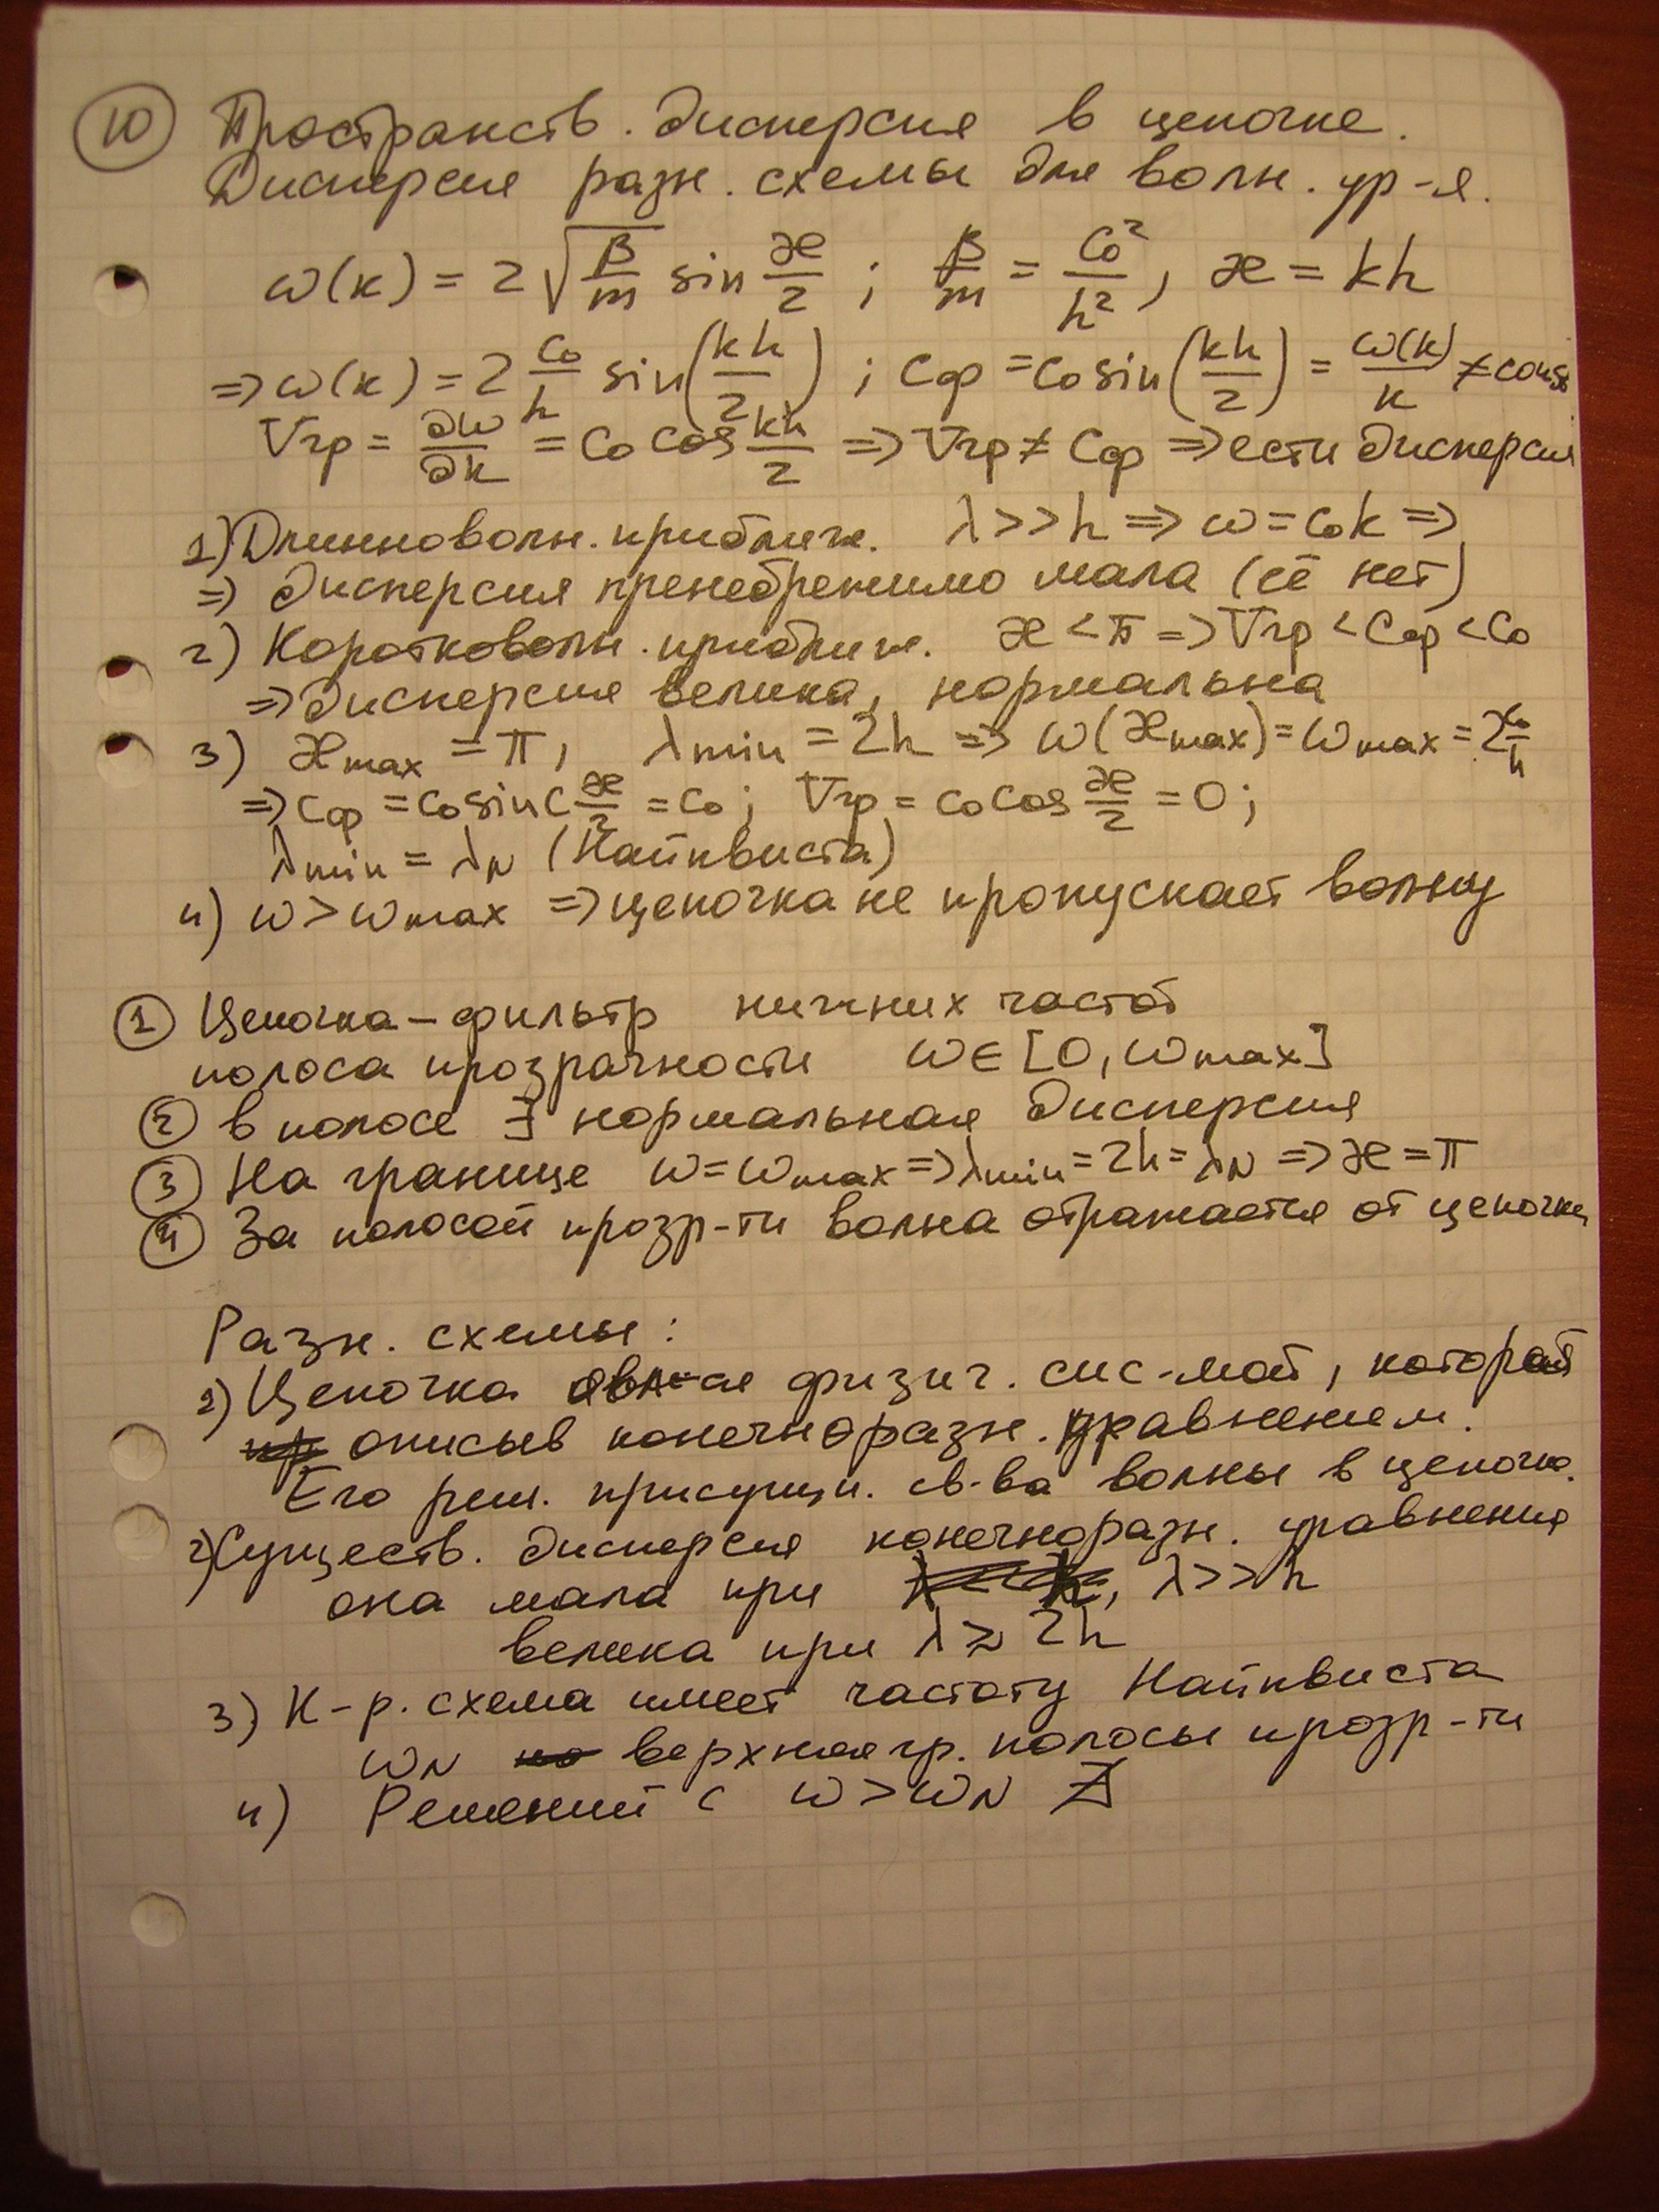 10 Пространств. дисперсия в цепочке.
Дисперсия разн. схемы для волн. ур-я.
ω(k) = 2√(β/m) sin æ/2 ; β/m = c₀²/h² , æ = kh
=> ω(k) = 2 c₀/h sin(kh/2) ; Cф = c₀ sin(kh/2) = ω(k)/k ≠ const
Vгр = ∂ω/∂k = c₀ cos kh/2 => Vгр ≠ Cф => есть дисперсия
1) Длинноволн. приближ. λ >> h => ω = c₀k =>
=> дисперсия пренебрежимо мала (её нет)
2) Коротковолн. приближ. æ < π => Vгр < Cф < C₀
=> дисперсия велика, нормальна
3) æmax = π, λmin = 2h => ω(æmax) = ωmax = 2 c₀/h
=> Cф = c₀ sin( æ/2 = c₀ ; Vгр = c₀ cos æ/2 = 0 ;
λmin = λN (Найквиста)
4) ω > ωmax => цепочка не пропускает волну
1 Цепочка – фильтр нижних частот
полоса прозрачности ω ∈ [0, ωmax]
2 в полосе ∃ нормальная дисперсия
3 На границе ω = ωmax => λmin = 2h = λN => æ = π
4 За полосой прозр-ти волна отражается от цепочки
Разн. схемы :
1) Цепочка явл-ся физич. сис-мой, которая
описыв конечноразн. уравнением.
Его реш. присущи. св-ва волны в цепочке.
2) Существ. дисперсия конечноразн. уравнения
она мала при λ >> h
велика при λ ≳ 2h
3) К-р. схема имеет частоту Найквиста
ωN верхняя гр. полосы прозр-ти
4) Решений с ω > ωN ∄